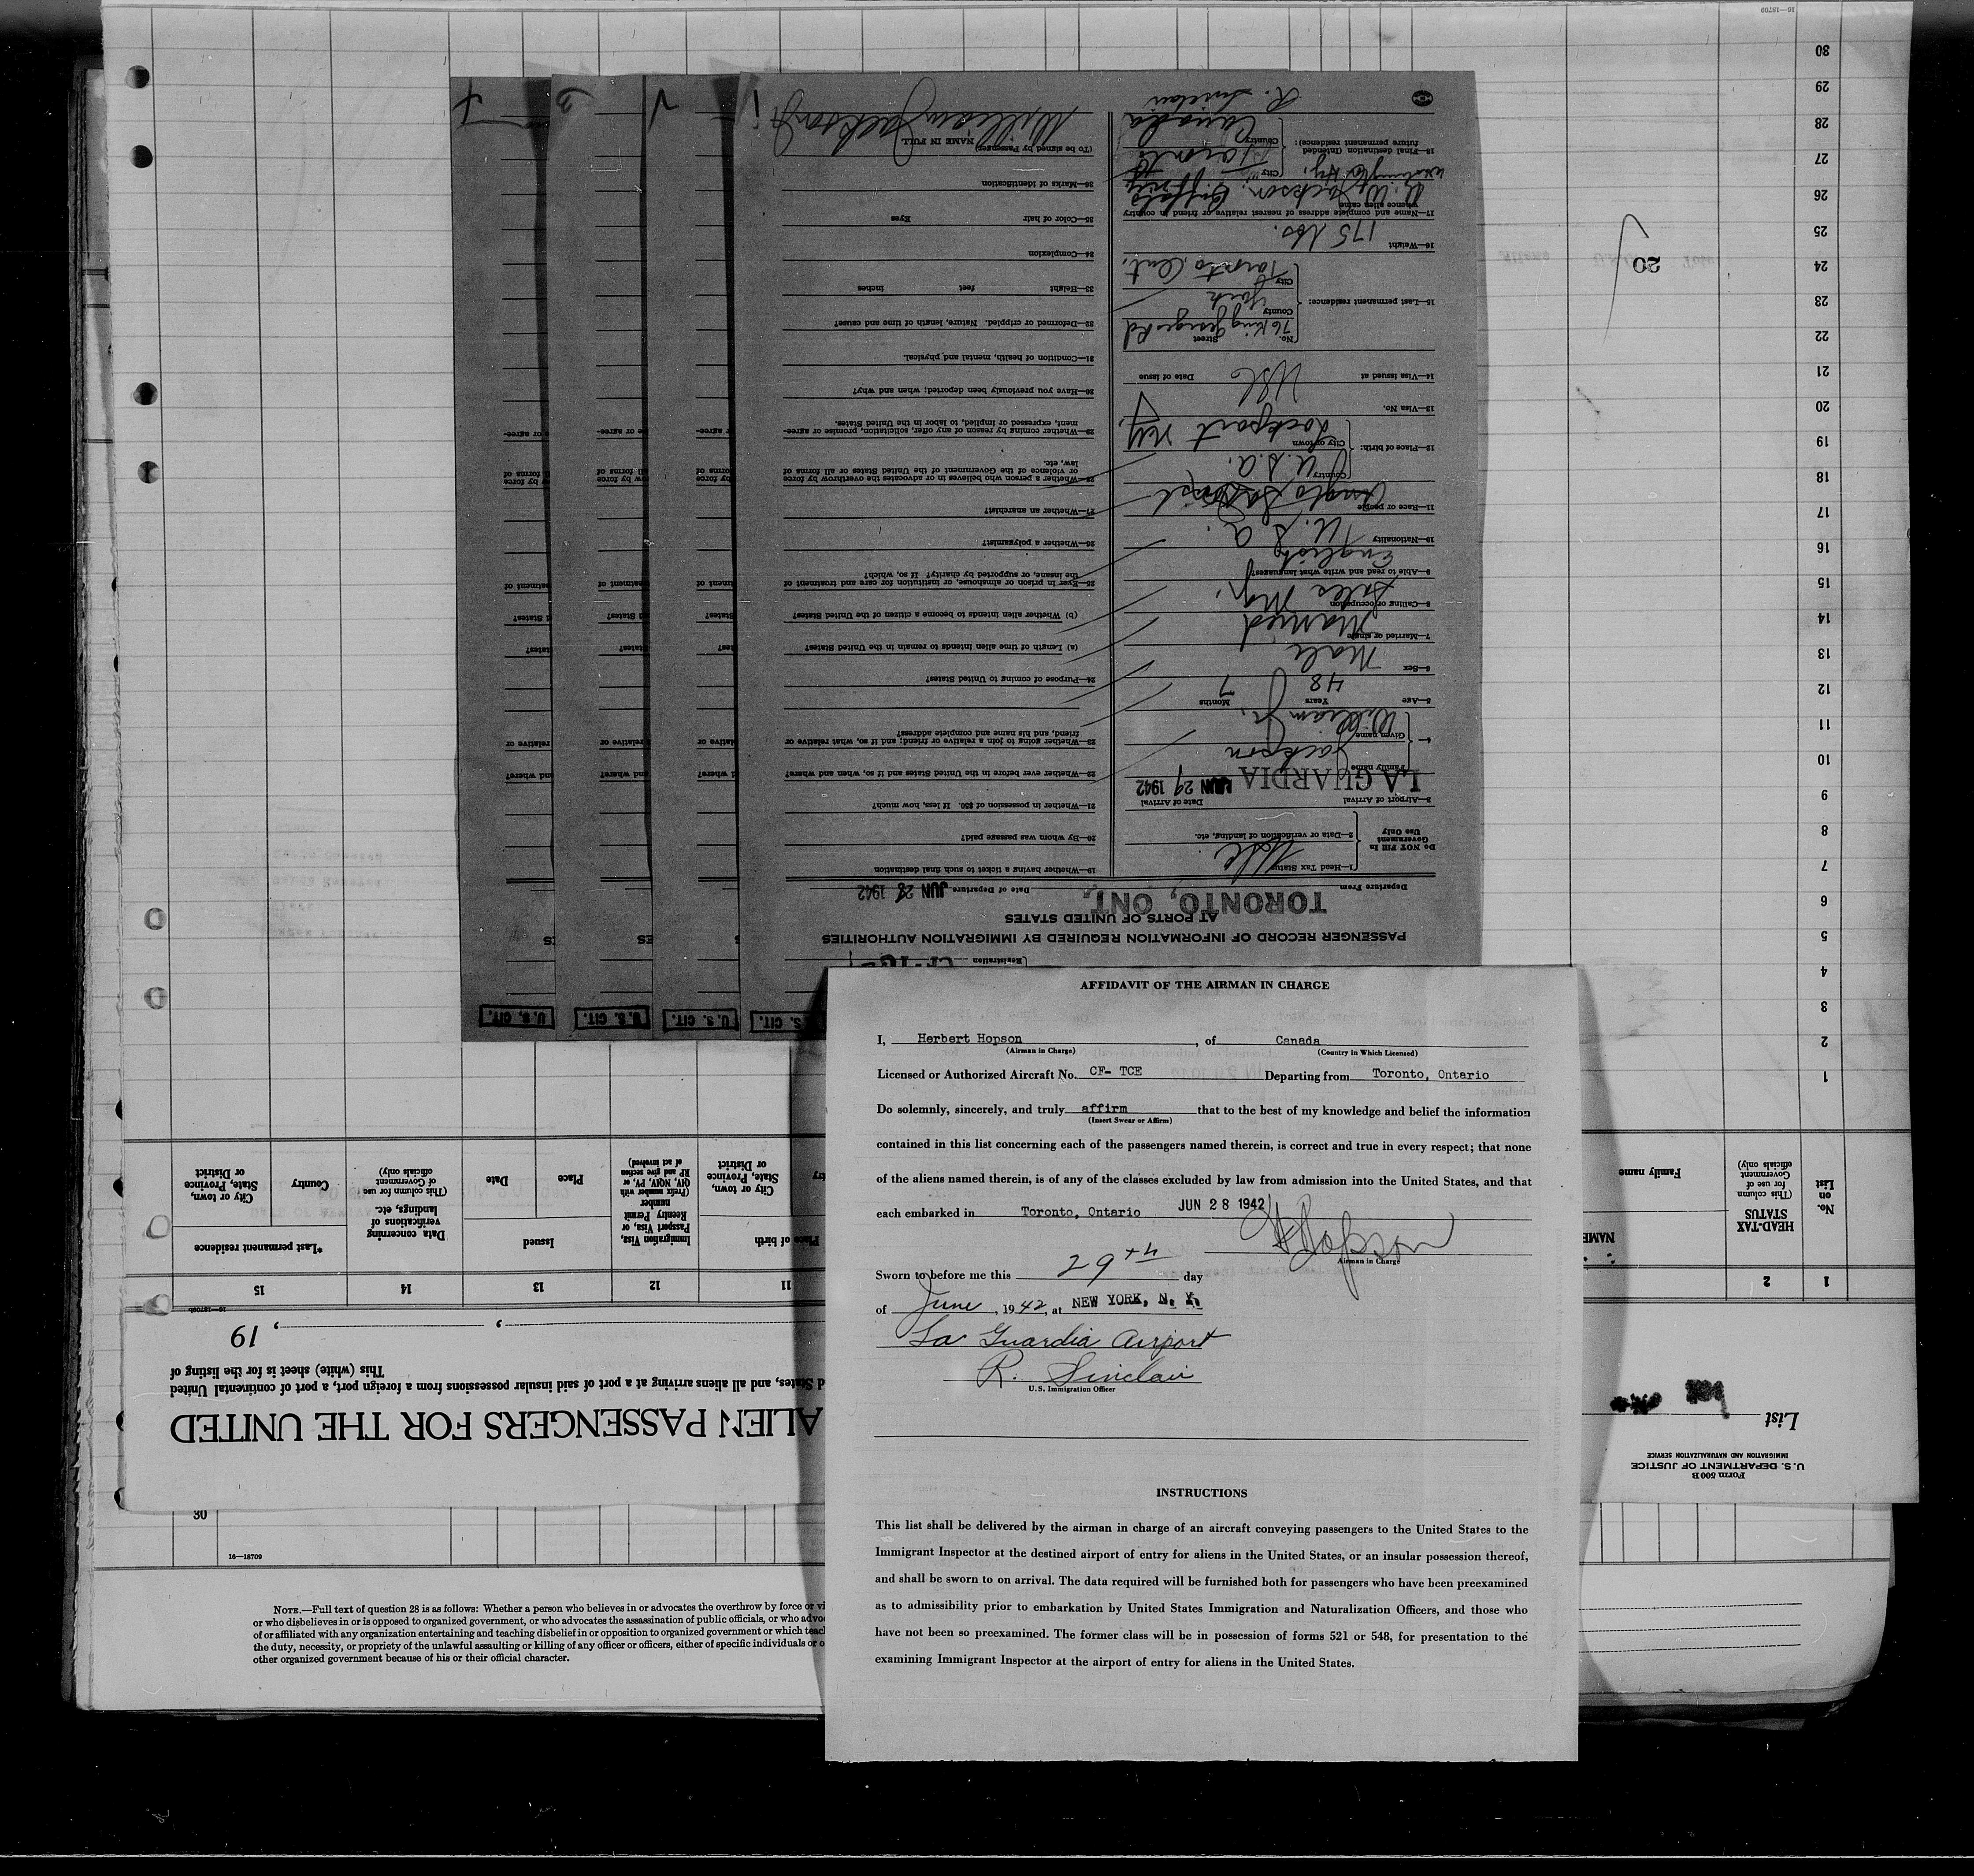 AFFIDAVIT OF THE AIRMAN IN CHARGE
I, Herbert Hopson, of Canada
(Airman in Charge) (Country in Which Licensed)
Licensed or Authorized Aircraft No. CF- TCE Departing from Toronto, Ontario
Do solemnly, sincerely, and truly affirm that to the best of my knowledge and belief the information
(Insert Swear or Affirm)
contained in this list concerning each of the passengers named therein, is correct and true in every respect; that none
of the aliens named therein, is of any of the classes excluded by law from admission into the United States, and that
each embarked in Toronto, Ontario JUN 28 1942
H Hopson
Airman in Charge
Sworn to before me this 29th day
of June, 1942, at NEW YORK, N. Y.
La Guardia Airport
R. Sinclair
U.S. Immigration Officer
INSTRUCTIONS
This list shall be delivered by the airman in charge of an aircraft conveying passengers to the United States to the
Immigrant Inspector at the destined airport of entry for aliens in the United States, or an insular possession thereof,
and shall be sworn to on arrival. The data required will be furnished both for passengers who have been preexamined
as to admissibility prior to embarkation by United States Immigration and Naturalization Officers, and those who
have not been so preexamined. The former class will be in possession of forms 521 or 548, for presentation to the
examining Immigrant Inspector at the airport of entry for aliens in the United States.
30
16—18709
NOTE.—Full text of question 28 is as follows: Whether a person who believes in or advocates the overthrow by force or
or who disbelieves in or is opposed to organized government, or who advocates the assassination of public officials, or who
of or affiliated with any organization entertaining and teaching disbelief in or opposition to organized government or which
the duty, necessity, or propriety of the unlawful assaulting or killing of any officer or officers, either of specific individuals or
other organized government because of his or their official character.
Form 500 B
U. S. DEPARTMENT OF JUSTICE
IMMIGRATION AND NATURALIZATION SERVICE
List
ALIEN PASSENGERS FOR THE UNITED
States, and all aliens arriving at a port of said insular possessions from a foreign port, a port of continental United
This (white) sheet is for the listing of
, , 19
16-18709
1 2 11 12 13 14 15
No. on List
HEAD-TAX STATUS
(This column for use of Government officials only)
Family name
Place of birth
City or town, State, Province or District
Immigration Visa, Passport Visa, or Reentry Permit number
(Prefix number with QIV, NQIV, PV, or RP and give section of act involved)
Issued
Place
Date
Data concerning verifications of landings, etc.
(This column for use of Government officials only)
*Last permanent residence
Country
City or town, State, Province or District
1
2
3
4
5
6
7
8
9
10
11
12
13
14
15
16
17
18
19
20
21
22
23
24
25
26
27
28
29
30
20
16-18709
U. S. CIT.
U. S. CIT.
U. S. CIT.
S. CIT.
Registration
PASSENGER RECORD OF INFORMATION REQUIRED BY IMMIGRATION AUTHORITIES
AT PORTS OF UNITED STATES
TORONTO, ONT.
Departure From
Date of Departure JUN 28 1942
Do NOT Fill In Government Use Only
1—Head Tax Status
2—Data or verification of landing, etc
3—Airport of Arrival Date of Arrival
LA GUARDIA JUN 29 1942
4 Family name Jackson
Given name William Jr.
5—Age Years 48 Months 7
6—Sex Male
7—Married or single Married
8—Calling or occupation Sales Mgr.
9—Able to read and write what languages? English
10—Nationality U.S.A.
11—Race or people Anglo
12—Place of birth: Country U.S.A.
City or town Lockport N.Y.
13—Visa No.
14—Visa issued at Date of issue
USC
15—Last permanent residence:
No. Street 76 King George Rd
County York
City Toronto, Ont.
16—Weight 175 lbs.
17—Name and complete address of nearest relative or friend in country whence alien came
Jackson, Buffalo
18—Final destination (Intended future permanent residence):
City Toronto
Country Canada
R. Sinclair
19—Whether having a ticket to such final destination
20—By whom was passage paid?
21—Whether in possession of $50. If less, how much?
22—Whether ever before in the United States and if so, when and where?
23—Whether going to join a relative or friend; and if so, what relative or
friend, and his name and complete address?
24—Purpose of coming to United States?
(a) Length of time alien intends to remain in the United States?
(b) Whether alien intends to become a citizen of the United States?
25—Ever in prison or almshouse, or institution for care and treatment of
the insane, or supported by charity? If so, which?
26—Whether a polygamist?
27—Whether an anarchist?
28—Whether a person who believes in or advocates the overthrow by force
or violence of the Government of the United States or all forms of
law, etc.
29—Whether coming by reason of any offer, solicitation, promise or agree-
ment, expressed or implied, to labor in the United States.
30—Have you previously been deported; when and why?
31—Condition of health, mental and physical.
32—Deformed or crippled. Nature, length of time and cause?
33—Height feet inches
34—Complexion
35—Color of hair Eyes
36—Marks of identification
(To be signed by Passenger) NAME IN FULL
William Jackson Jr